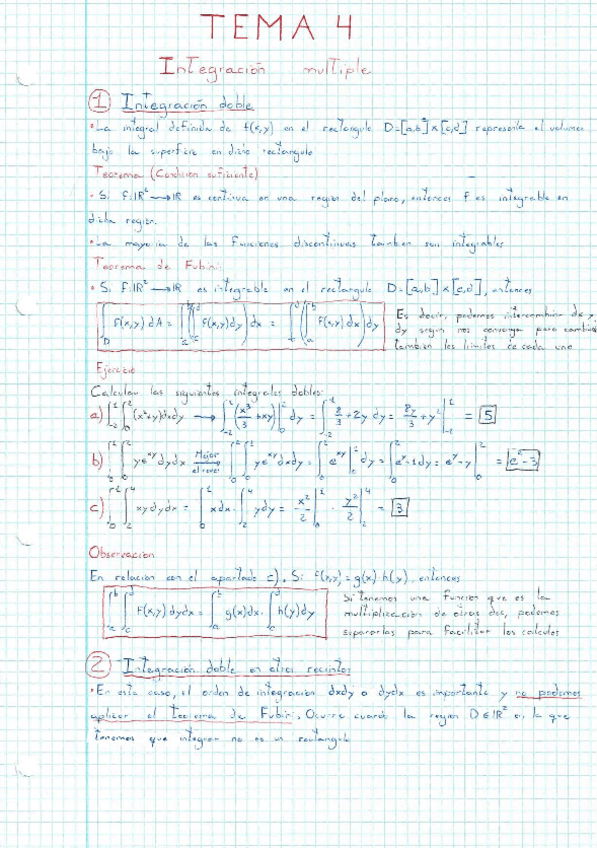 TEMA 4
Integración multiple
1 Integración doble
• La integral definida de f(x,y) en el rectangulo D=[a,b]x[c,d] representa el volumen
bajo la superficie en dicho rectangulo
Teorema (Condicion suficiente)
• Si f:IR²→IR es continua en una region del plano, entonces f es integrable en
dicha region.
• La mayoria de las funciones discontinuas tambien son integrables
Teorema de Fubini:
• Si f:IR²→IR es integrable en el rectangulo D=[a,b]x[c,d], entonces
∫_D f(x,y) dA = ∫_a^b (∫_c^d f(x,y)dy) dx = ∫_c^d (∫_a^b f(x,y)dx) dy
Es decir, podemos intercambiar dx y
dy segun nos convenga pero
tambien los limites de cada uno
Ejercicio
Calcular las siguientes integrales dobles:
a) (x²+y)dxdy → (x³/3 + xy) dy = 8/3 + 2y dy = 8y/3 + y² = 5
b) ye^xy dydx Mejor al reves ye^xy dxdy = e^xy dy = e^2y - 1 dy =
c) xydydx = xdx · ydy = x²/2 · y²/2 = 3
Observacion
En relacion con el apartado c). Si f(x,y)=g(x)·h(y), entonces
∫_a^b ∫_c^d f(x,y) dydx = ∫_a^b g(x)dx · ∫_c^d h(y)dy
Si tenemos una funcion que es la
multiplicacion de otras dos, podemos
separarlas para facilitar los calculos
2 Integración doble en otros recintos
• En este caso, el orden de integracion dxdy o dydx es importante y no podemos
aplicar el teorema de Fubini. Ocurre cuando la region D∈IR² en la que
tenemos que integrar no es un rectangulo